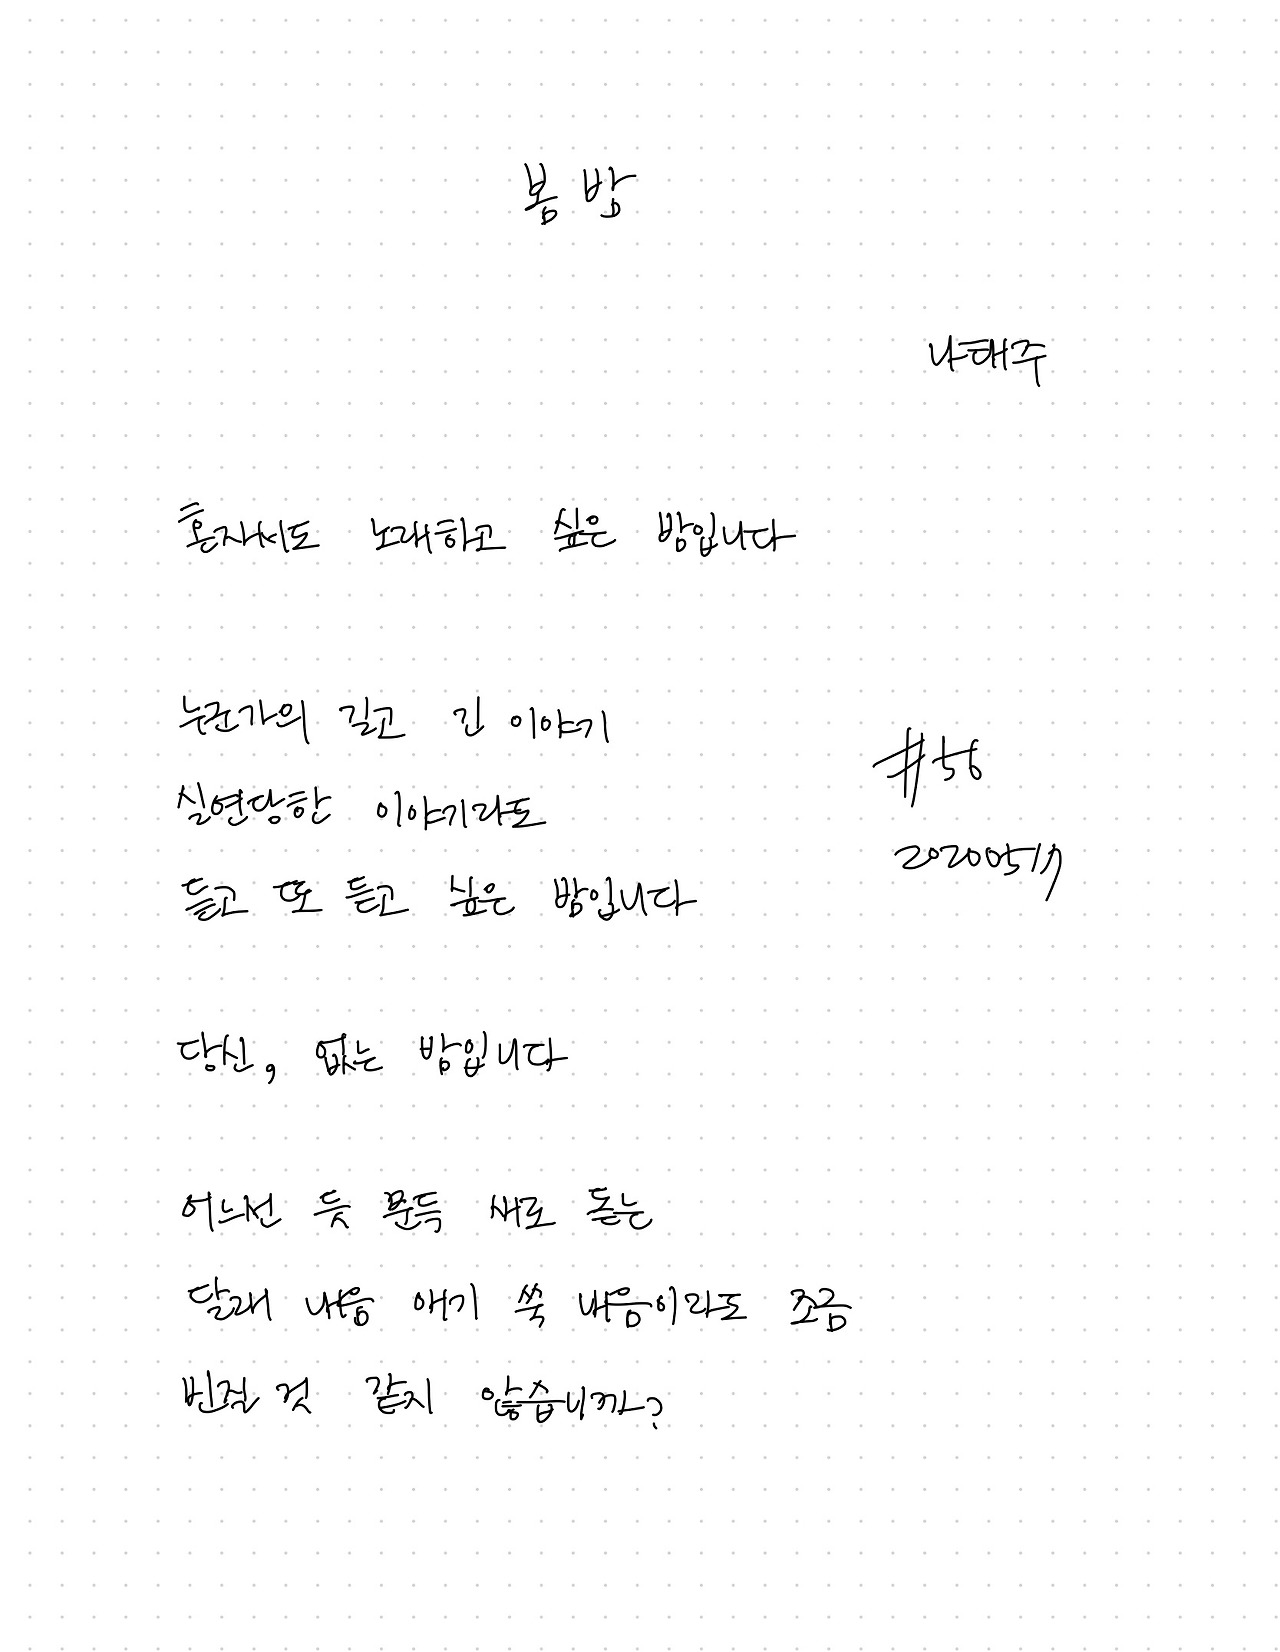 봄 밤
나태주
혼자서도 노래하고 싶은 밤입니다
누군가의 길고 긴 이야기
#56
실연당한 이야기라도
20200517
듣고 또 듣고 싶은 밤입니다
당신, 없는 밤입니다
어느선 듯 문득 새로 돋는
달래 내음 애기 쑥 내음이라도 조금
번질 것 같지 않습니까?